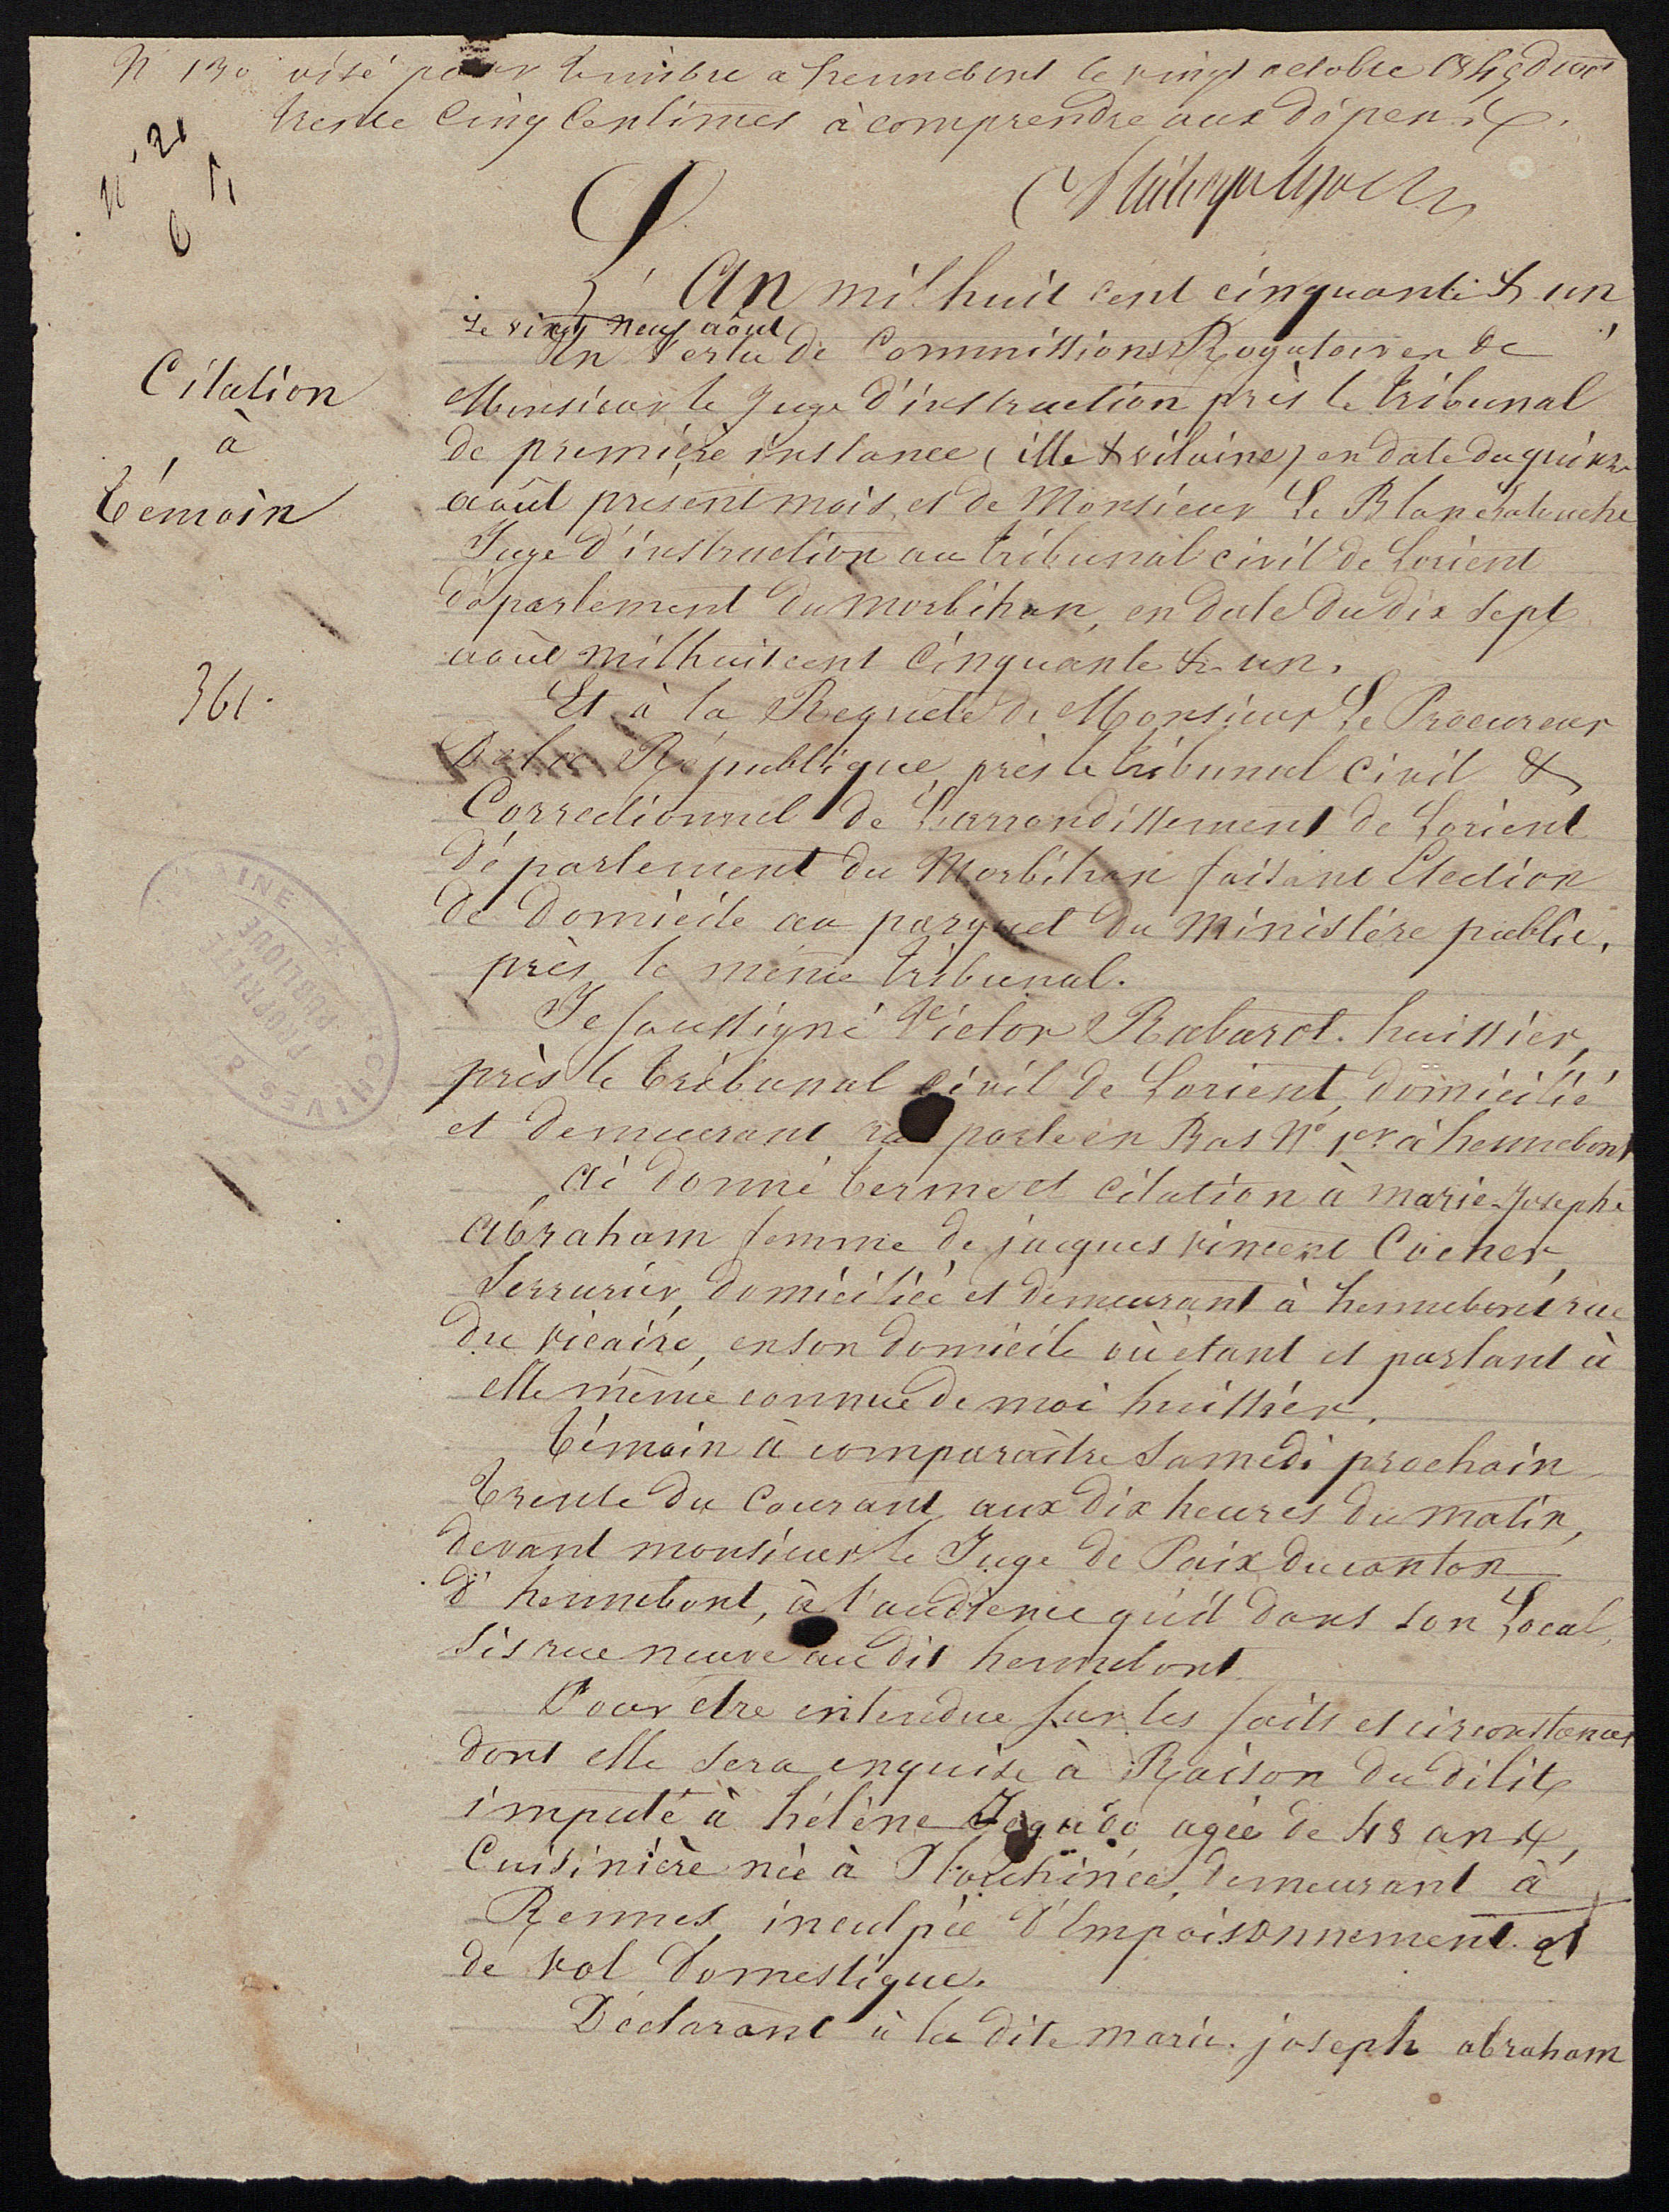 N 130 visé pour timbre a hennebont le vingt octobre
trente cinq Centimes à comprendre aux dépens.
L'An mil huit cent cinquante & un
Le vingt neuf août
En Vertu de Commissions Rogatoires de
Citation
à
Témoin
Monsieur le Juge d'instruction près le tribunal
de première instance (ille & vilaine) en date du quinze
août présent mois, et de Monsieur Le
Juge d'instruction au tribunal civil de Lorient
département du Morbihan, en date du dix sept
août mil huit cent Cinquante & un.
361.
Et à la Requete de Monsieur Le Procureur
De la République près le tribunal Civil &
Correctionnel de L'arrondissement de Lorient
département du Morbihan faisant Election
de Domicile au parquet du Ministère public,
près le même tribunal.
Je soussigné Victor Rabarot. huissier,
près le tribunal civil de Lorient, domicilié
et demeurant rue porte en Bas N° 1er à hennebont
Ai donné terme et citation à marie-Josephe
Abraham femme de jacques vincent Cocher,
Serrurier, domiciliée et demeurant à hennebont rue
du vicaire, en son domicile où étant et parlant à
elle même connue de moi huissier.
Témoin à comparaître Samedi prochain
trente du Courant aux dix heures du matin,
devant monsieur le Juge de Paix du canton
d'hennebont, à l'audience qu'il dans son Local,
sis rue neuve au dit hennebont
Pour etre entendue sur les faits et circonstances
dont elle sera enquise à Raison du délit
imputé à hélène Jegado agée de 48 ans,
Cuisinière née à Plouhinec, demeurant à
Rennes, inculpée d'Empoisonnement et
de vol domestique.
Déclarant à la dite marie. joseph abraham
ARCHIVES
PROPRIÉTÉ
PUBLIQUE